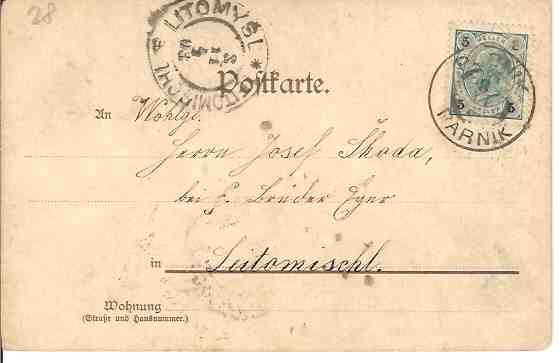 28
LITOMYŠL
LEITOMISCHL
Postkarte.
5 5
PARNIK
5 5
An Wohlgb.
Herrn Josef Škoda,
bei Brüder Eger
in Leitomischl.
Wohnung
(Straße und Hausnummer.)